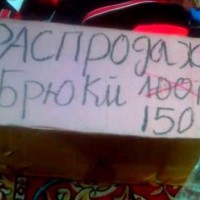 РАСПРОДАЖ
БРЮКИ 100
150